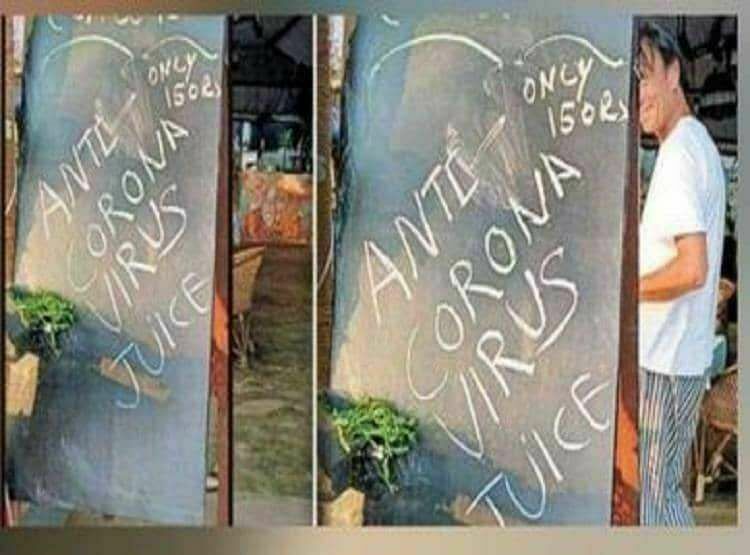 ONLY
150Rs
ANTI
CORONA
VIRUS
JUICE
ONLY
150Rs
ANTI
CORONA
VIRUS
JUICE